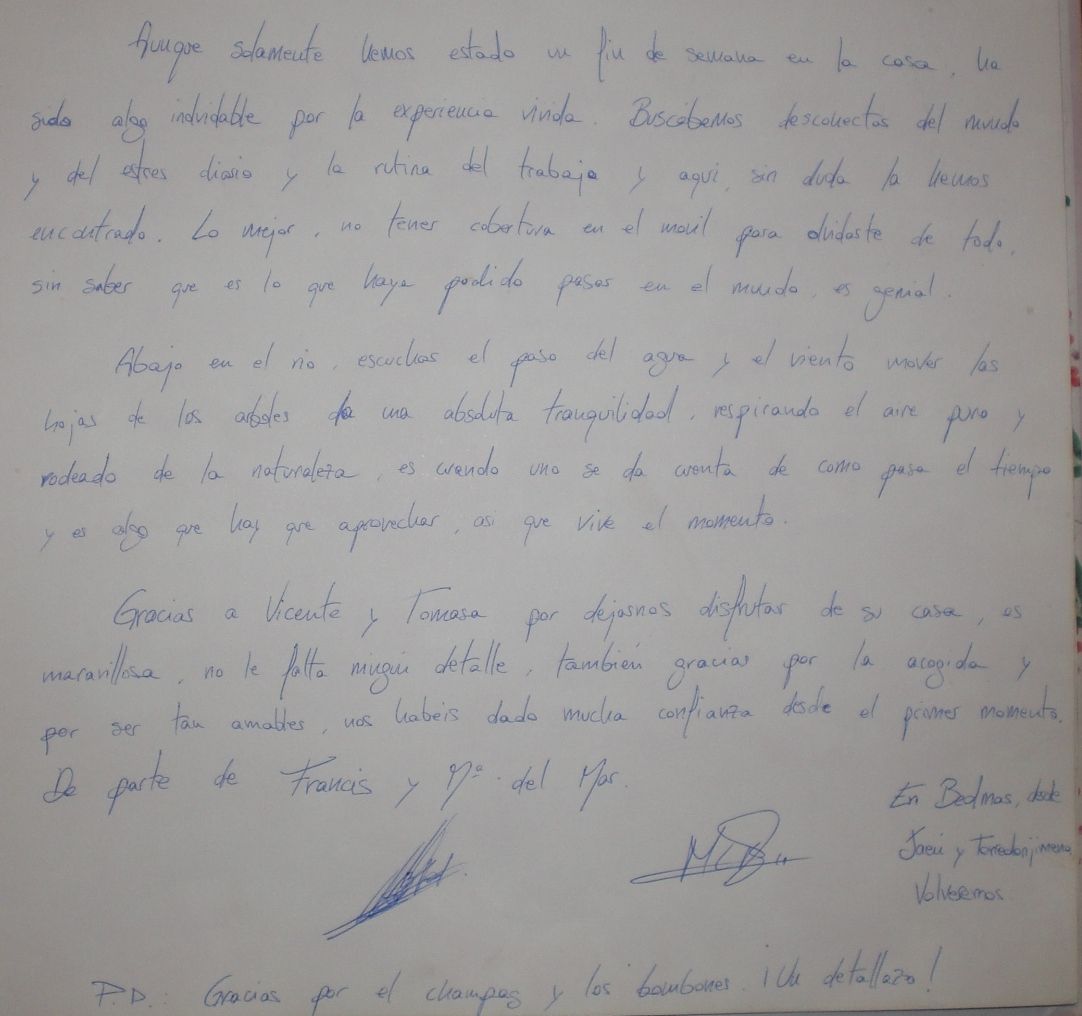 Aunque solamente hemos estado un fin de semana en la casa, ha
sido algo inolvidable por la experiencia vivida. Buscábamos desconectar del mundo
y del estres diario y la rutina del trabajo y aquí, sin duda la hemos
encontrado. Lo mejor, no tener cobertura en el movil para olvidarte de todo,
sin saber que es lo que haya podido pasar en el mundo, es genial.
Abajo en el rio, escuchar el paso del agua y el viento mover las
hojas de los arboles da una absoluta tranquilidad, respirando el aire puro y
rodeado de la naturaleza, es cuando uno se da cuenta de como pasa el tiempo
y es algo que hay que aprovechar, asi que vive el momento.
Gracias a Vicente y Tomasa por dejarnos disfrutar de su casa, es
maravillosa, no le falta ningún detalle, también gracias por la acogida y
por ser tan amables, nos habeis dado mucha confianza desde el primer momento.
De parte de Francis y Mª del Mar.
En Bedmar, desde
Jaén y Torredonjimeno
Volveremos
P.D.: Gracias por el champag y los bombones. ¡Un detallazo!